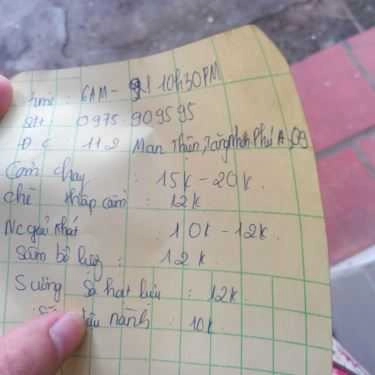 time : 6AM - 10h30PM
Sđt 0975 909595
Đ C : 112 Man Thiện, Tăng Nhơn Phú A, Q9
Cơm chay : 15k - 20k.
chè thập cẩm : 12k
Nc giải khát : 10k - 12k
Sâm bổ lượng : 12k
Sương sa hạt lựu : 12k
đậu nành : 10k